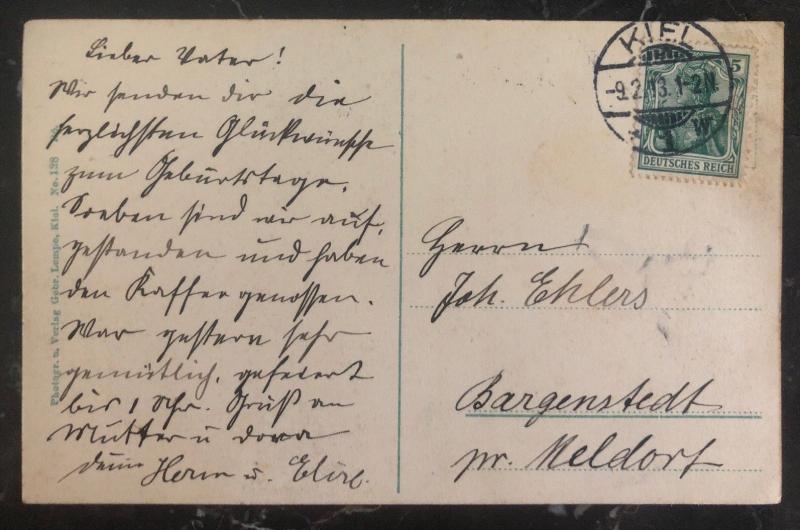 Lieber Vater!
Wir senden dir die
herzlichsten Glückwünsche
zum Geburtstage.
Soeben sind wir auf-
gestanden und haben
den Kaffee genossen.
War gestern sehr
gemütlich, gefeiert
bis 1 Uhr. Gruß an
Mutter u Dora
Herm u.
Photogr. u. Verlag Gebr. Lempe, Kiel. No. 138
KIEL
-9.2.13.1-2N.
W
5
DEUTSCHES REICH
Herrn
Joh. Ehlers
Bargenstedt
pr. Meldorf